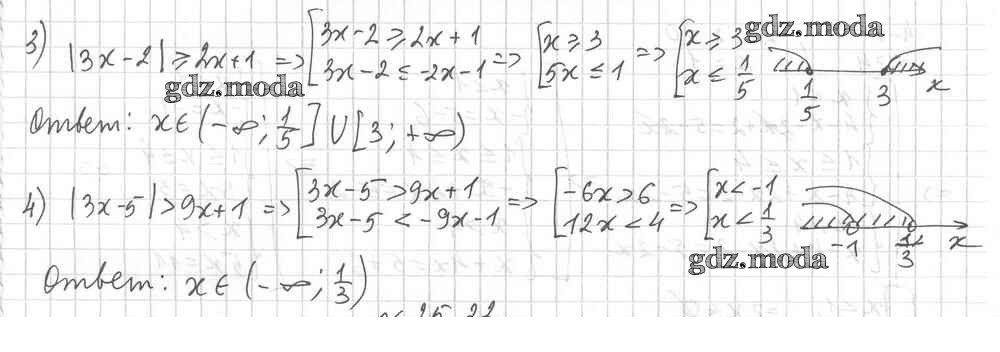 3) |3x-2| ≥ 2x+1 => [3x-2 ≥ 2x+1 ; 3x-2 ≤ -2x-1 => [x ≥ 3 ; 5x ≤ 1 => [x ≥ 3 ; x ≤ 1/5 1/5 3 x
gdz.moda
gdz.moda
Ответ: x∈(-∞; 1/5] ∪ [3; +∞)
4) |3x-5| > 9x+1 => [3x-5 > 9x+1 ; 3x-5 < -9x-1 => [-6x > 6 ; 12x < 4 => [x < -1 ; x < 1/3 -1 1/3 x
gdz.moda
Ответ: x∈(-∞; 1/3)